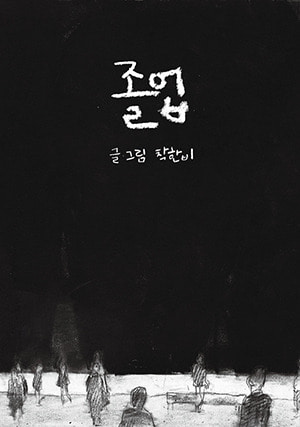 졸업
글·그림 착한비